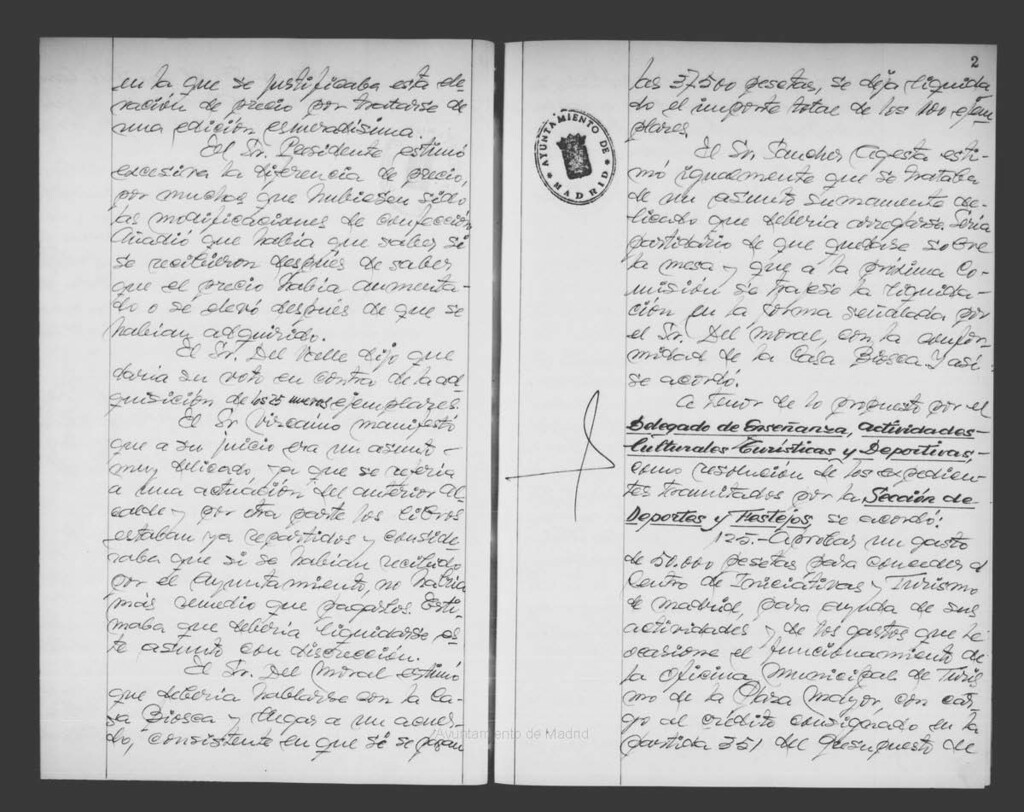 en la que se justificaba esta ele-
vación de precio por tratarse de
una edición esmeradísima.
El Sr. Presidente estimó
excesiva la diferencia de precio,
por muchas que hubiesen sido
las modificaciones de confección
Añadió que había que saber si
se recibieron después de saber
que el precio había aumenta-
do o se elevó después de que se
habían adquirido.
El Sr. Del Valle dijo que
daría su voto en contra de la ad-
quisición de los 25 nuevos ejemplares.
El Sr. Vizcaíno manifestó
que a su juicio era un asunto
muy delicado, ya que se refería
a una actuación del anterior Al-
calde y por otra parte los libros
estaban ya repartidos y conside-
raba que si se habían recibido
por el Ayuntamiento, no habría
más remedio que pagarlos. Esti-
maba que debería liquidarse es-
te asunto con discreción.
El Sr. Del Moral estimó
que debería hablarse con la Ca-
sa Biosca y llegar a un acuer-
do, consistente en que si se pagan
2
las 37.500 pesetas, se deja liquida-
do el importe total de los 100 ejem-
plares.
AYUNTAMIENTO DE MADRID
El Sr. Sánchez Agesta esti-
mó igualmente que se trataba
de un asunto sumamente de-
licado que debería arreglarse. Sería
partidario de que quedase sobre
la mesa y que a la próxima Co-
misión se traiga la liquida-
ción en la forma señalada por
el Sr. Del Moral, con la confor-
midad de la Casa Biosca. Y así
se acordó.
A tenor de lo propuesto por el
Delegado de Enseñanza, Actividades
Culturales Turísticas y Deportivas,
como resolución de los expedien-
tes tramitados por la Sección de
Deportes y Festejos, se acordó:
125.- Aprobar un gasto
de 50.000 pesetas para conceder al
Centro de Iniciativas y Turismo
de Madrid, para ayuda de sus
actividades y de los gastos que le
ocasione el funcionamiento de
la Oficina Municipal de Turis-
mo de la Plaza Mayor, con car-
go al crédito consignado en la
partida 351 del Presupuesto de
Ayuntamiento de Madrid